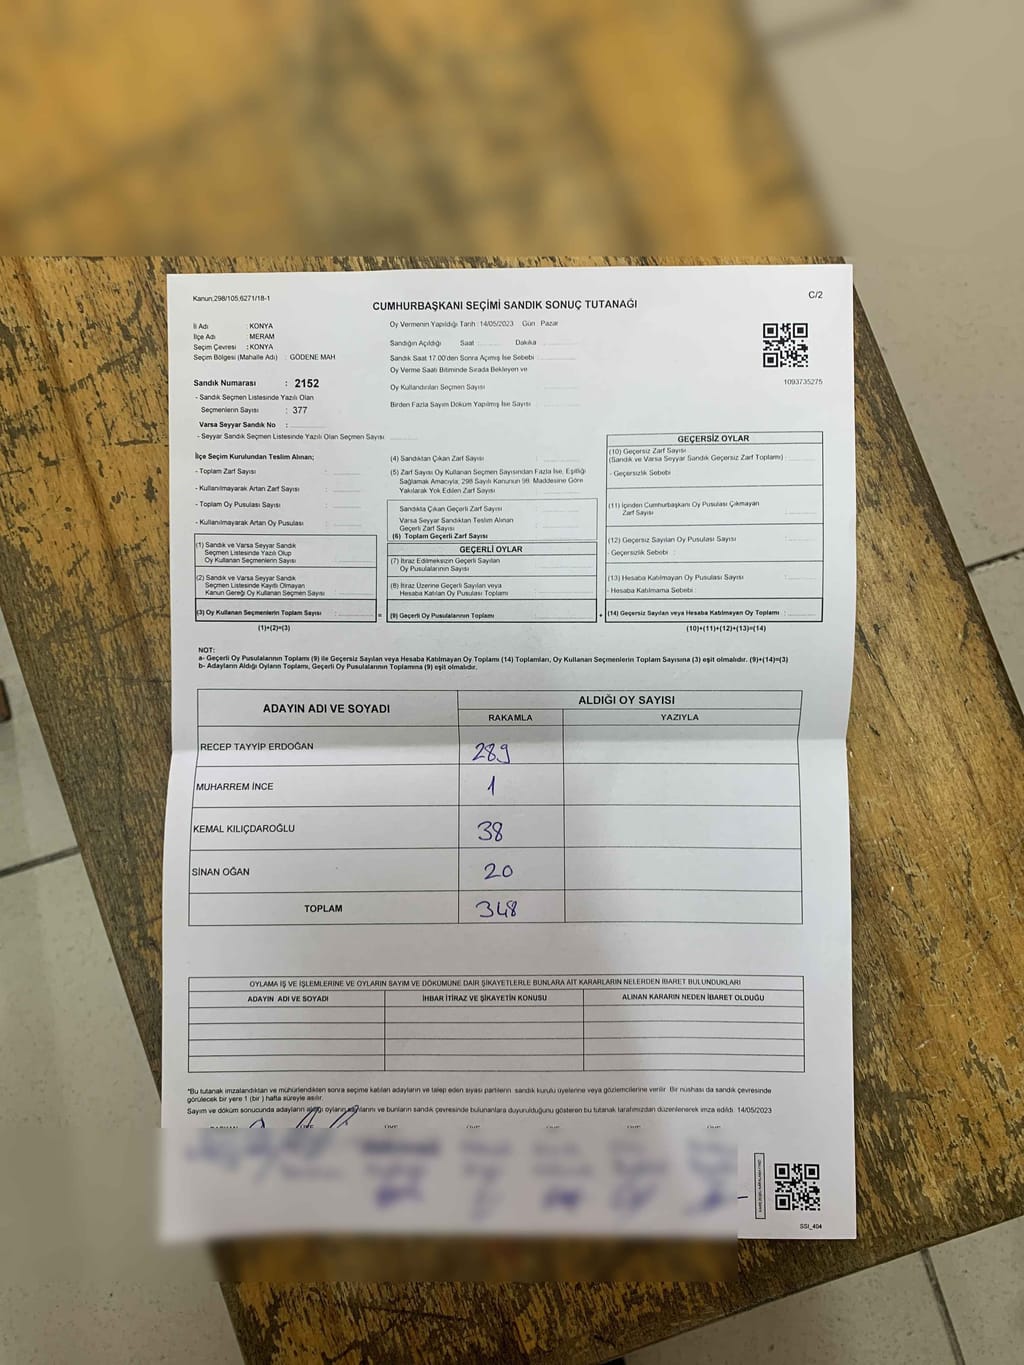 Kanun,298/105,6271/18-1
C/2
CUMHURBAŞKANI SEÇİMİ SANDIK SONUÇ TUTANAĞI
İl Adı : KONYA
İlçe Adı : MERAM
Seçim Çevresi : KONYA
Seçim Bölgesi (Mahalle Adı) : GÖDENE MAH
Sandık Numarası : 2152
- Sandık Seçmen Listesinde Yazılı Olan
Seçmenlerin Sayısı : 377
Varsa Seyyar Sandık No :
- Seyyar Sandık Seçmen Listesinde Yazılı Olan Seçmen Sayısı
Oy Vermenin Yapıldığı Tarih : 14/05/2023 Gün : Pazar
Sandığın Açıldığı Saat : Dakika
Sandık Saat 17.00'den Sonra Açılmış İse Sebebi :
Oy Verme Saati Bitiminde Sırada Bekleyen ve
Oy Kullandırılan Seçmen Sayısı
Birden Fazla Sayım Döküm Yapılmış İse Sayısı :
1093735275
İlçe Seçim Kurulundan Teslim Alınan;
- Toplam Zarf Sayısı :
- Kullanılmayarak Artan Zarf Sayısı :
- Toplam Oy Pusulası Sayısı :
- Kullanılmayarak Artan Oy Pusulası :
(1) Sandık ve Varsa Seyyar Sandık
Seçmen Listesinde Yazılı Olup
Oy Kullanan Seçmenlerin Sayısı :
(2) Sandık ve Varsa Seyyar Sandık
Seçmen Listesinde Kayıtlı Olmayan
Kanun Gereği Oy Kullanan Seçmenlerin Sayısı :
(3) Oy Kullanan Seçmenlerin Toplam Sayısı :
(1)+(2)=(3)
(4) Sandıktan Çıkan Zarf Sayısı :
(5) Zarf Sayısı Oy Kullanan Seçmen Sayısından Fazla İse, Eşitliği
Sağlamak Amacıyla; 298 Sayılı Kanunun 98. Maddesine Göre
Yakılarak Yok Edilen Zarf Sayısı :
Sandıkta Çıkan Geçerli Zarf Sayısı :
Varsa Seyyar Sandıktan Teslim Alınan
Geçerli Zarf Sayısı :
(6) Toplam Geçerli Zarf Sayısı :
GEÇERLİ OYLAR
(7) İtiraz Edilmeksizin Geçerli Sayılan
Oy Pusulalarının Sayısı :
(8) İtiraz Üzerine Geçerli Sayılan veya
Hesaba Katılan Oy Pusulası Toplamı :
= (9) Geçerli Oy Pusulalarının Toplamı :
GEÇERSİZ OYLAR
(10) Geçersiz Zarf Sayısı
(Sandık ve Varsa Seyyar Sandık Geçersiz Zarf Toplamı) :
- Geçersizlik Sebebi :
(11) İçinden Cumhurbaşkanı Oy Pusulası Çıkmayan
Zarf Sayısı :
(12) Geçersiz Sayılan Oy Pusulası Sayısı :
- Geçersizlik Sebebi :
(13) Hesaba Katılmayan Oy Pusulası Sayısı :
- Hesaba Katılmama Sebebi :
+ (14) Geçersiz Sayılan veya Hesaba Katılmayan Oy Toplamı :
(10)+(11)+(12)+(13)=(14)
NOT:
a- Geçerli Oy Pusulalarının Toplamı (9) ile Geçersiz Sayılan veya Hesaba Katılmayan Oy Toplamı (14) Toplamları, Oy Kullanan Seçmenlerin Toplam Sayısına (3) eşit olmalıdır. (9)+(14)=(3)
b- Adayların Aldığı Oyların Toplamı, Geçerli Oy Pusulalarının Toplamına (9) eşit olmalıdır.
ADAYIN ADI VE SOYADI
ALDIĞI OY SAYISI
RAKAMLA YAZIYLA
RECEP TAYYİP ERDOĞAN 289
MUHARREM İNCE 1
KEMAL KILIÇDAROĞLU 38
SİNAN OĞAN 20
TOPLAM 348
OYLAMA İŞ VE İŞLEMLERİNE VE OYLARIN SAYIM VE DÖKÜMÜNE DAİR ŞİKAYETLERLE BUNLARA AİT KARARLARIN NELERDEN İBARET BULUNDUKLARI
ADAYIN ADI VE SOYADI İHBAR İTİRAZ VE ŞİKAYETİN KONUSU ALINAN KARARIN NEDEN İBARET OLDUĞU
*Bu tutanak imzalandıktan ve mühürlendikten sonra seçime katılan adayların ve talep eden siyasi partilerin sandık kurulu üyelerine veya gözlemcilerine verilir. Bir nüshası da sandık çevresinde
görülecek bir yere 1 (bir ) hafta süreyle asılır.
Sayım ve döküm sonucunda adayların aldığı oyların sayılarını ve bunların sandık çevresinde bulunanlara duyurulduğunu gösteren bu tutanak tarafımızdan düzenlenerek imza edildi. 14/05/2023
SSI_404